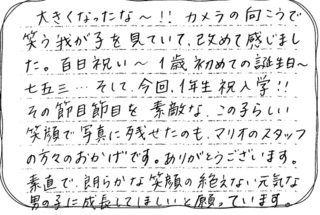 大きくなったな〜!! カメラの向こうで
笑う我が子を見ていて、改めて感じまし
た。百日祝い〜1歳初めての誕生日〜
七五三…そして、今回、1年生祝入学!!
その節目節目を素敵な、この子らしい
笑顔で写真に残せたのも、マリオのスタッフ
の方々のおかげです。ありがとうございます。
素直で、朗らかな笑顔の絶えない元気な
男の子に成長してほしいと願っています。